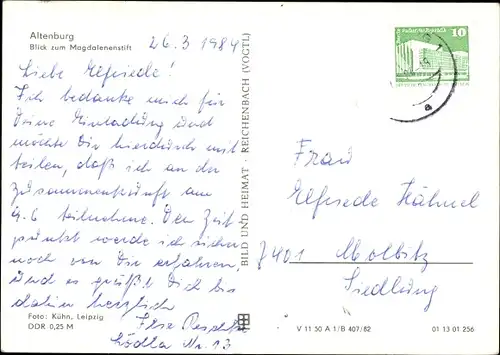 Altenburg
Blick zum Magdalenenstift
26.3 1984
Liebe Elfriede!
Ich bedanke mich für
Deine Einladung und
möchte Dir hierdurch mit
teilen, daß ich an der
Zusammenkunft am
9.6 teilnehme. Den Zeit
punkt werde ich sicher
noch von Dir erfahren,
Und es grüßt Dich bis
dahin herzlich
Ilse
Lödla Nr. 13
Foto: Kühn, Leipzig
DDR 0,25 M
BILD UND HEIMAT · REICHENBACH (VOGTL)
10
a
Frau
Elfriede Hähnel
7401 Molbitz
Siedlung
V 11 50 A 1/B 407/82
01 13 01 256